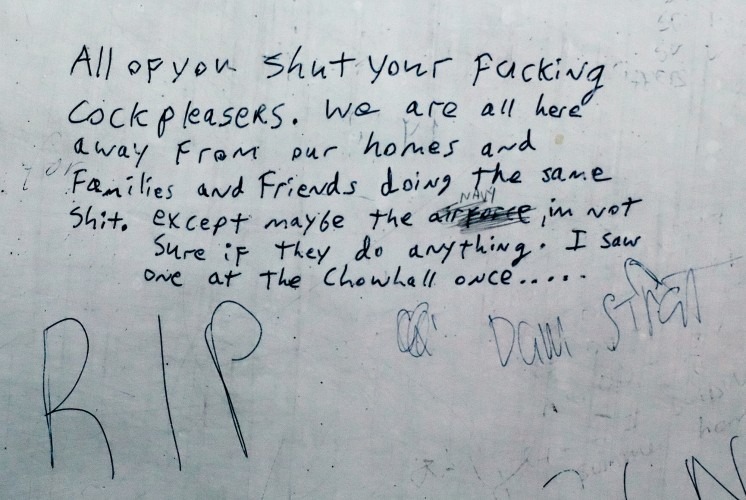 All of you shut your fucking
cockpleasers. We are all here
away from our homes and
families and friends doing the same
NAVY
shit. except maybe the airforce, im not
sure if they do anything. I saw
one at the chowhall once.....
Dam Strat
RIP